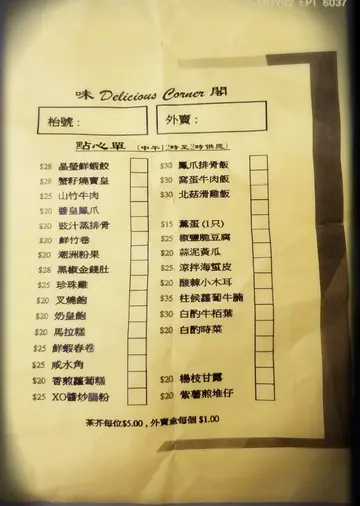 EPT 6037
味 Delicious Corner 閣
枱號：
外賣：
點心單 (中午12時至2時供應)
$28 晶瑩鮮蝦餃
$28 蟹籽燒賣皇
$25 山竹牛肉
$20 醬皇鳳爪
$20 豉汁蒸排骨
$20 鮮竹卷
$20 潮洲粉果
$28 黑椒金錢肚
$25 珍珠雞
$20 叉燒飽
$20 奶皇飽
$20 馬拉糕
$25 鮮蝦春卷
$25 咸水角
$20 香煎蘿蔔糕
$25 XO醬炒腸粉
$30 鳳爪排骨飯
$30 窩蛋牛肉飯
$30 北菇滑雞飯
$15 薰蛋 (1只)
$25 椒鹽脆豆腐
$20 蒜泥黃瓜
$25 涼拌海蜇皮
$20 酸辣小木耳
$35 柱候蘿蔔牛腩
$30 白酌牛栢葉
$20 白酌時菜
$20 楊枝甘露
$20 紫薯煎堆仔
茶芥每位$5.00 , 外賣盒每個 $1.00